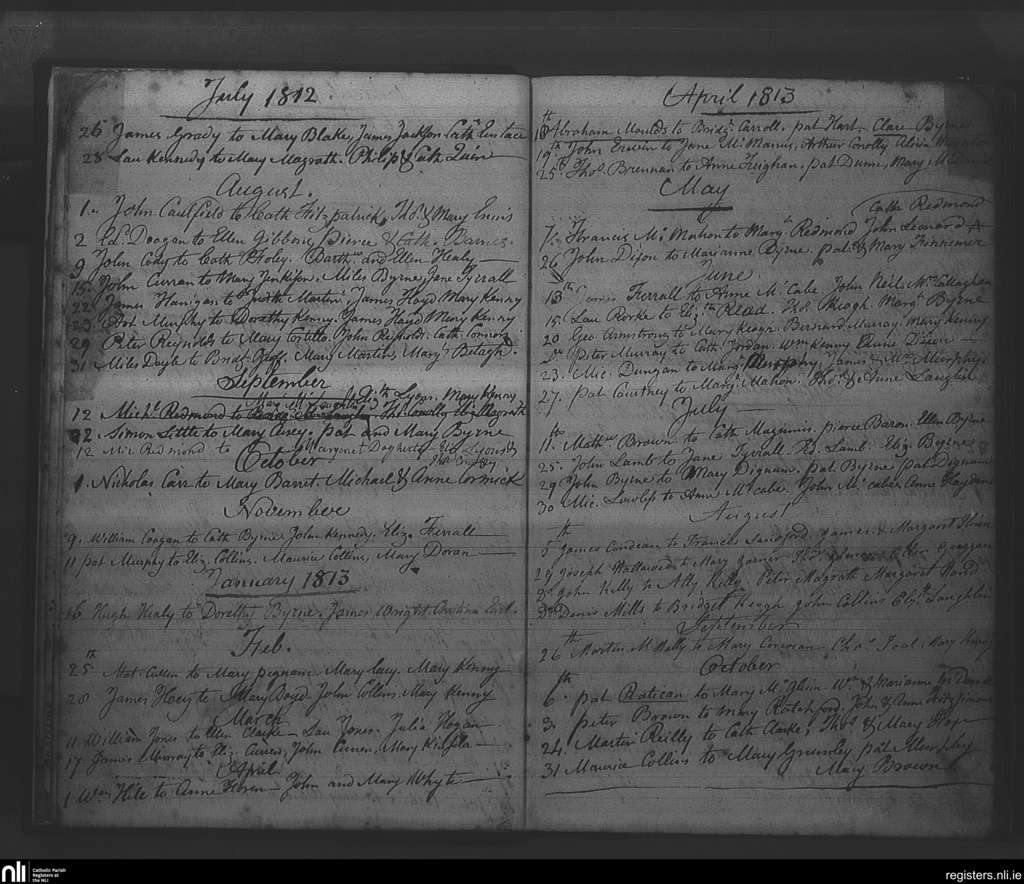 July 1812
26 James Grady to Mary Blake, James Jackson Cath Eustace
28 Lau Kennedy to Mary Magrath. Philip & Cath Quin
August.
1. John Caulfield to Cath Fitzpatrick, Thos. & Mary Ennis
2 Ed. Doogan to Ellen Gibbons, Pierce & Cath. Barnes.
9 John Coby to Cath Foley. Barthw and Ellen Healy
15 John Curran to Mary Jenkison. Miles Byrne, Jane Tyrrall
22 James Hanigan to Judith Martin, James Floyd Mary Kenny
23 Pat Murphy to Dorothy Kenny. James Floyd Mary Kenny
29 Peter Reynolds to Mary Costello. John Reynolds. Cath Connor
31 Miles Doyle to Bridt Goff. Mary Martin, Mary Betagh.
September
12 Michl. Redmond to Lyons. Mary Kenny
12. Simon Little to Mary Casey. Pat and Mary Byrne
12 Mic Redmond to Margaret Dogherty Lyons &
October
1. Nicholas Carr to Mary Barret Michael & Anne Cormick
November
9. William Coogan to Cath Byrne John Kennedy. Eliz. Ferrall
11 Pat Murphy to Eliz. Collins. Maurice Collins, Mary Doran
January 1813
16 Hugh Healy to Dorothy Byrne. James Wright
Feb.
25th Mat. Cullen to Mary Dignam. Mary Lacy. Mary Kenny
28 James Hoey to Mary Boyd John Collins. Mary Kenny
March
11 William Jones to Ellen Clarke Lau Jones. Julia Hogan
17 James Murray to Eliz Curren, John Curren. Mary
April
1 Wm. Hile to Anne John and Mary Whyte
April 1813
18th Abraham Moulds to Bridgt. Carroll. Pat Hart Clare Byrne
19th John Erwin to Jane Mc Manus, Arthur Conolly
25th Thos. Brennan to Anne Feighan, Pat Dunne, Mary
May
Cath Redmond
7. Francis Mc Mahon to Margt Redmond John Leonard
26 John Dixon to Marianne Byrne. Pat & Mary Finnemor
June
13th James Ferrall to Anne McCabe. John Neil, Callaghan
15. Lau Rorke to Elizth Read. Thos. Keogh Margt. Byrne
20 Geo Armstrong to Mary Keogh. Bernard Murray. Mary Kenny
Peter Murray to Cath Jordan. Wm Kenny Dixon
23. Mic. Dungan to Margt Murphy, James & Murphy
27. Pat Courtney to Margt. Mahon. Thos. & Anne Laughlin
July
11. Mathw Brown to Cath Maginnis. Pierce Baron. Ellen Byrne
25. John Lamb to Jane Tyrall. Ed. Lamb. Eliz. Byrne
29 John Byrne to Mary Dignam. Pat. Byrne Pat Dignam
30 Mic. Lawless to Anne McCabe. John McCabe, Anne
August
8th James to Frances Sandford. James & Margaret
29 Joseph to Mary
John Kelly to Ally Kelly. Peter Magrath Margaret
Denis Mills to Bridget Keogh John Collins Elizth. Loughlin
September
26th Martin McNally to Mary Corcoran
October
6th. Pat Ratican to Mary McGlinn Wm & Marianne
3. Peter Brown to Mary Rochford, John & Anne Fitzsimons
24. Martin Reilly to Cath Clarke, Thos & Mary
31 Maurice Collins to Mary Pat Murphy
Mary Brown
nli
Catholic Parish
Registers at
the NLI
registers.nli.ie